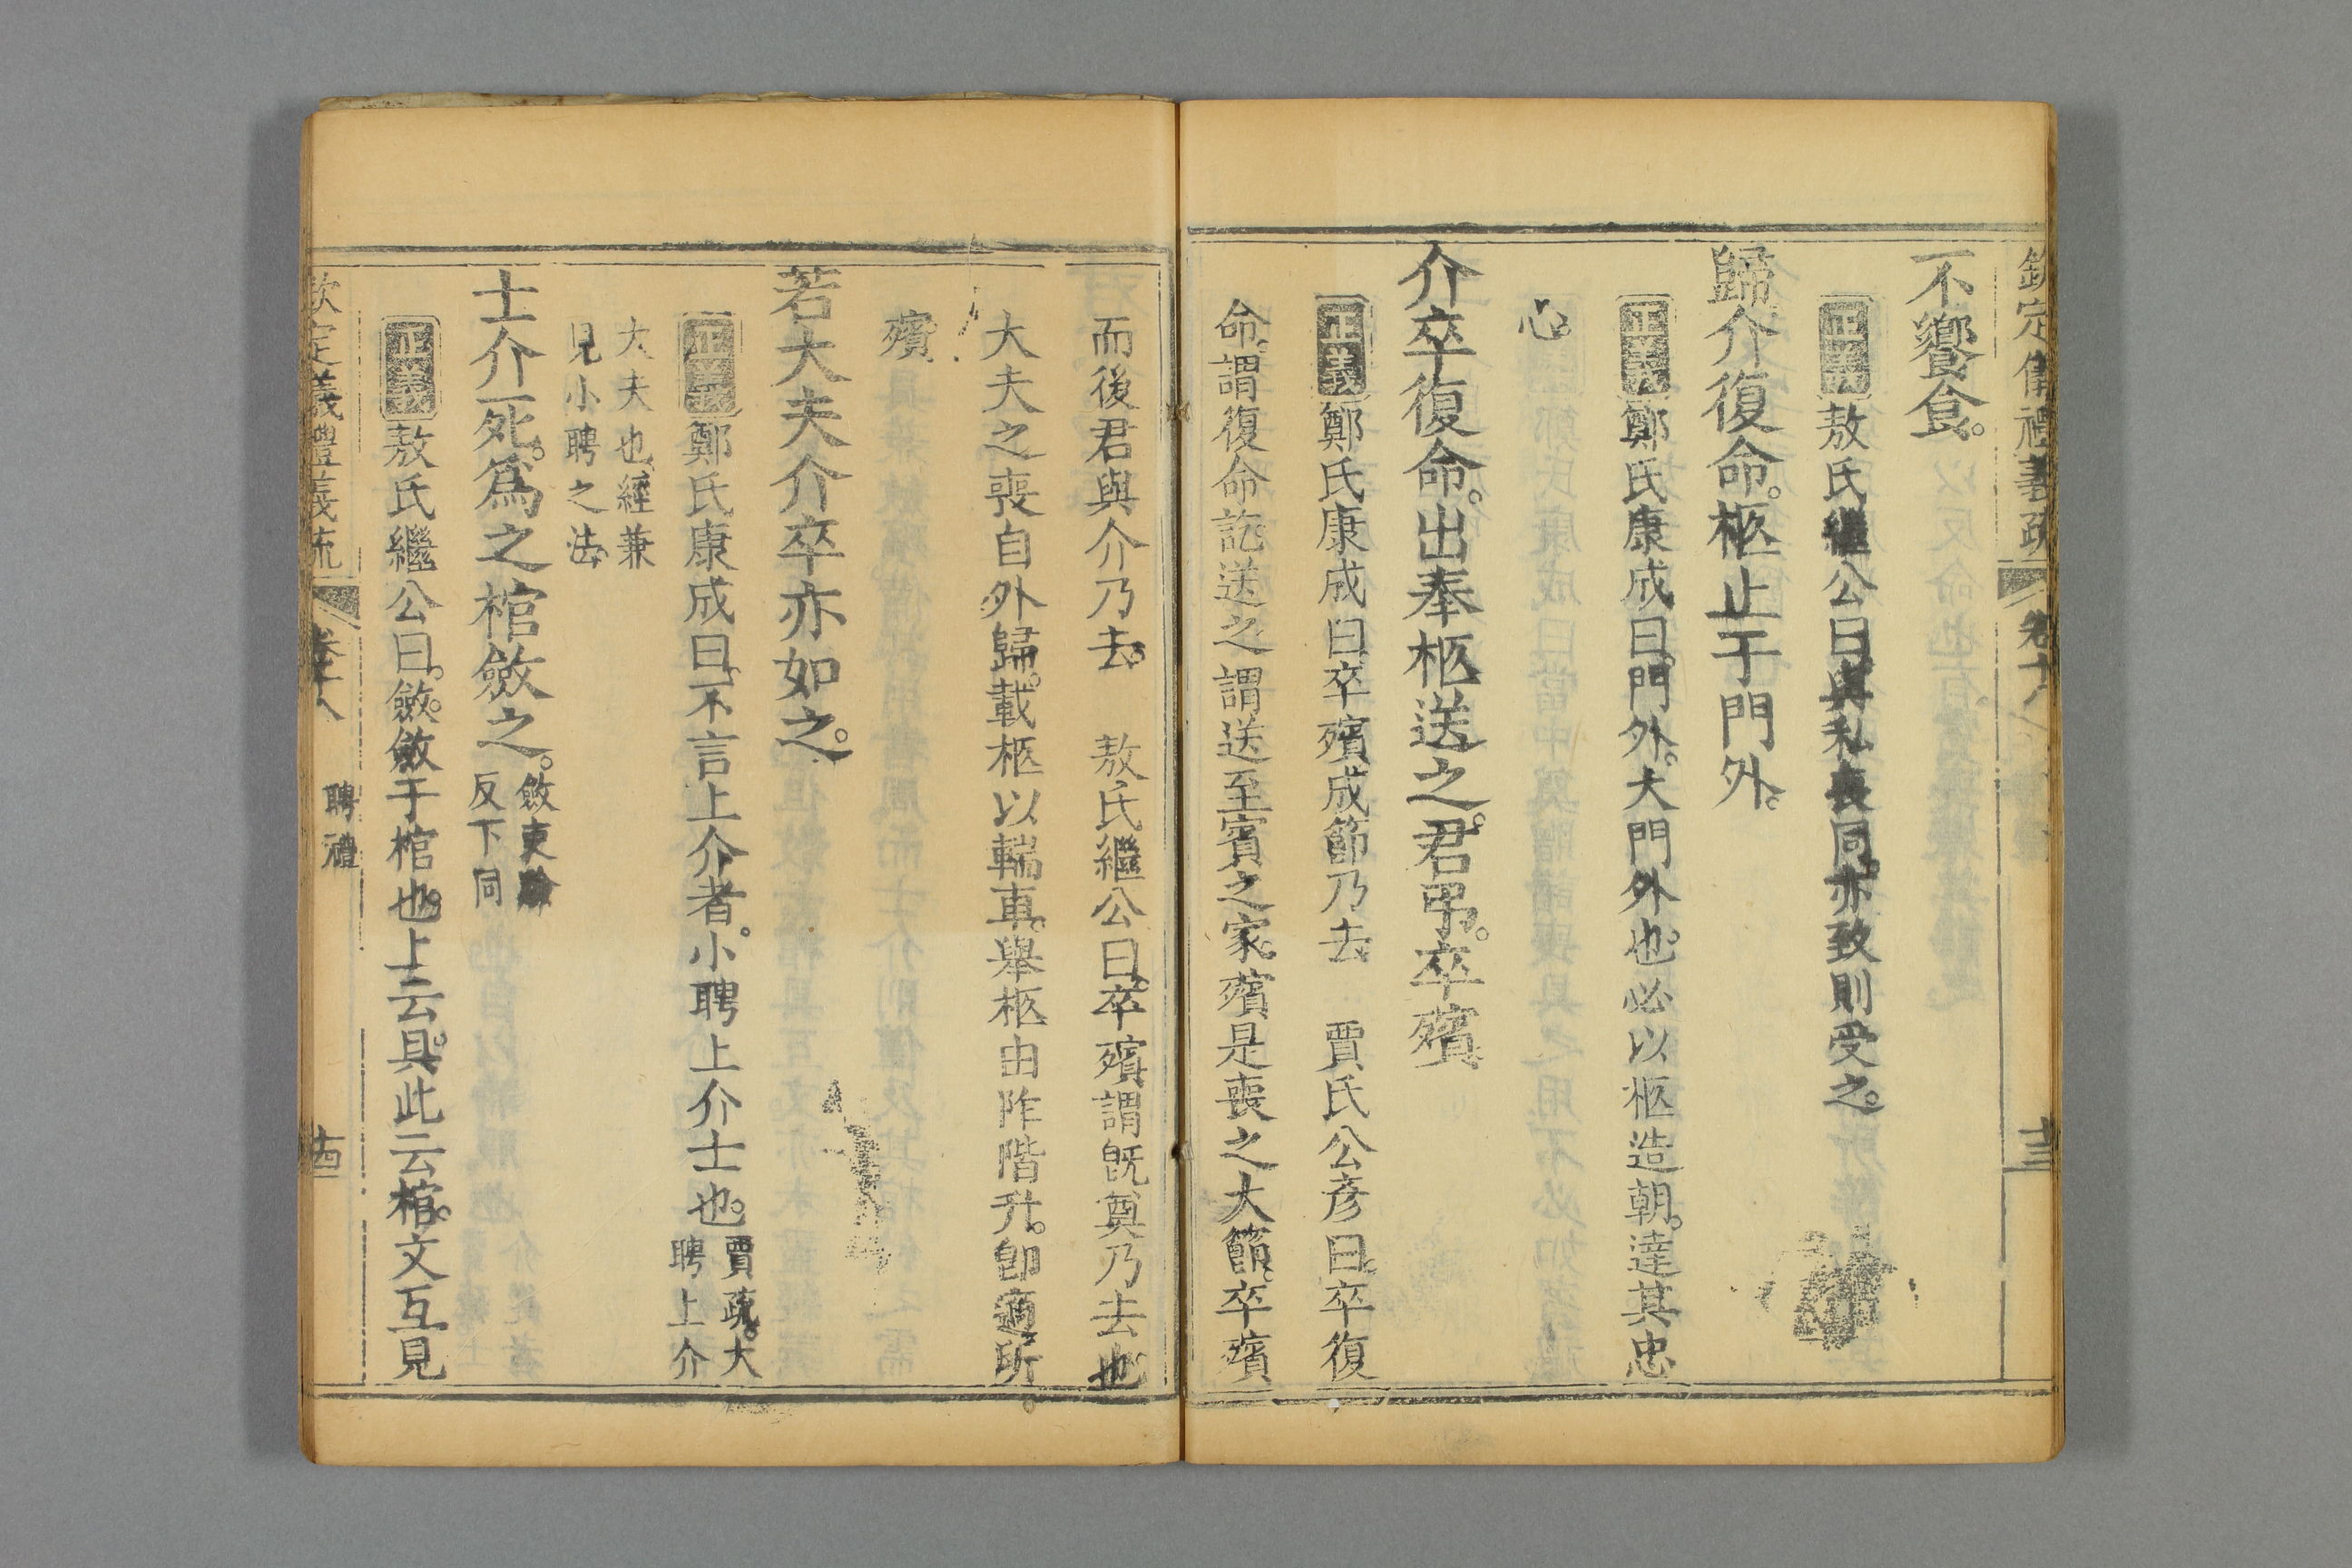 欽定儀禮義疏 卷十八 十三
不饗食。
正義敖氏繼公曰與私喪同。亦致則受之。
歸介復命。柩止于門外。
正義鄭氏康成曰。門外。大門外也。必以柩造朝。達其忠
心。
介卒復命。出奉柩送之。君弔。卒殯
正義鄭氏康成曰卒殯成節乃去 賈氏公彥曰。卒復
命。謂復命訖送之謂送至賓之家。殯是喪之大節。卒殯
而後君與介乃去。 敖氏繼公曰。卒殯謂旣奠乃去也
大夫之喪自外歸。載柩以輲車。舉柩由阼階升。卽適所
殯。
若大夫介卒亦如之。
正義鄭氏康成曰。不言上介者。小聘上介士也。賈疏。大聘上介
大夫也。經兼見小聘之法。
士介死。爲之棺斂之。斂吏驗反下同
正義敖氏繼公曰。斂。斂于棺也。上云具。此云棺。文互見
欽定儀禮義疏 卷十八 聘禮 十四